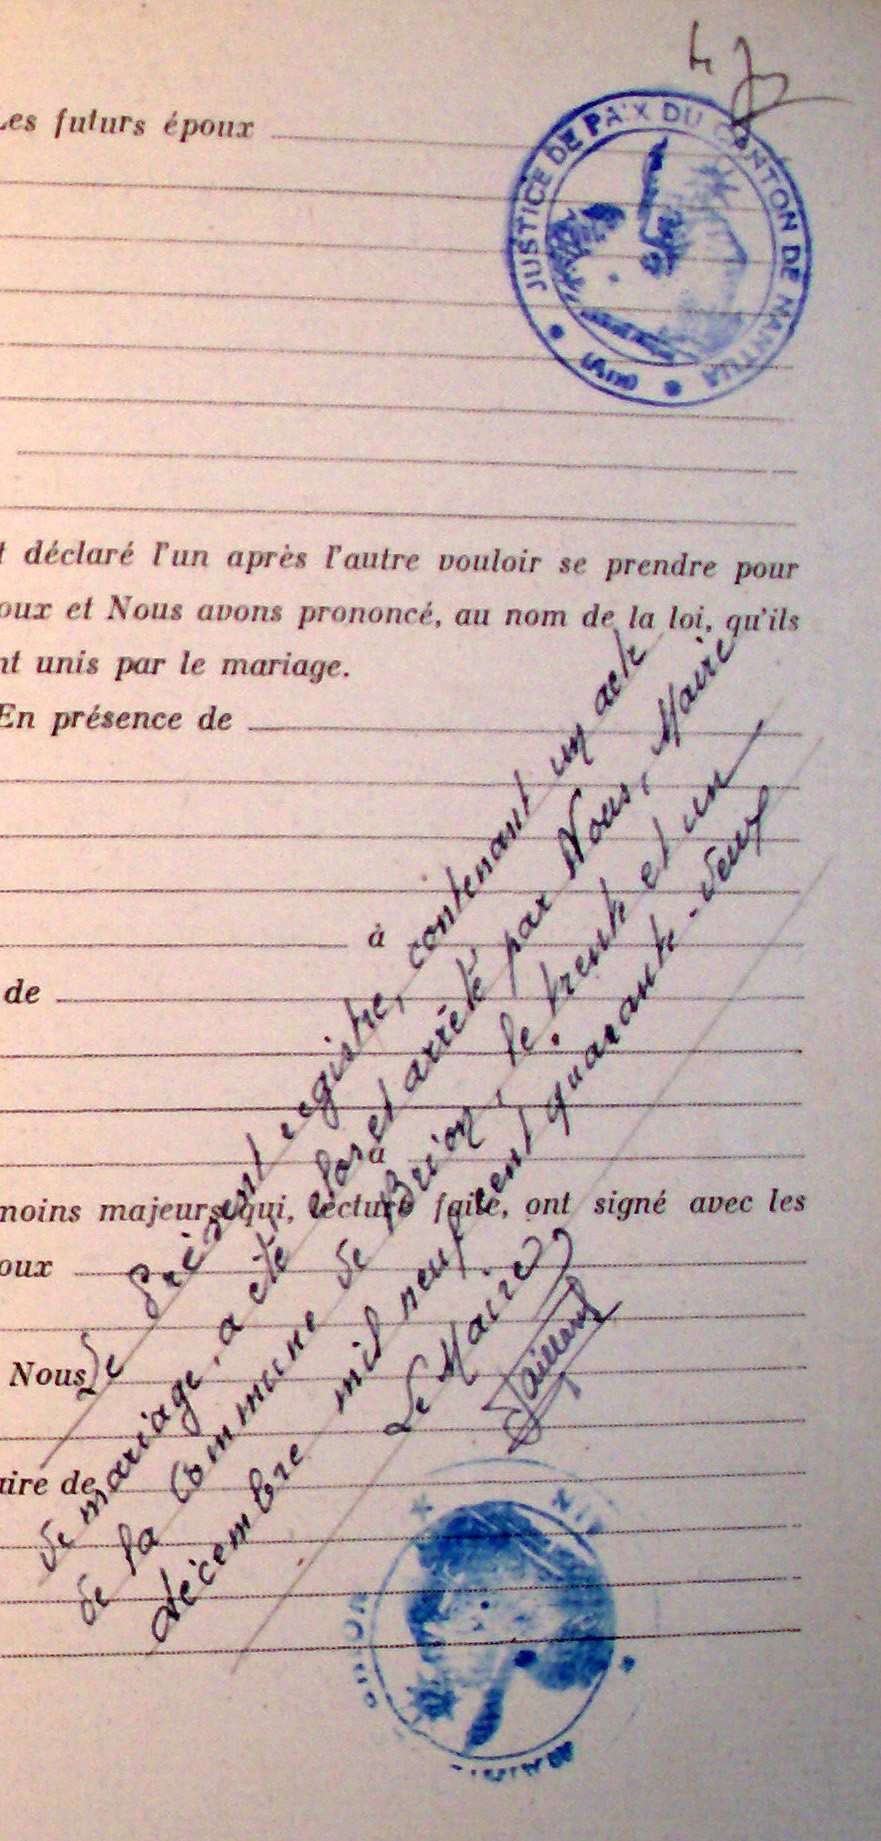 Les futurs époux
JUSTICE DE PAIX DU CANTON DE MANTUA
(Ain)
t déclaré l'un après l'autre vouloir se prendre pour
oux et Nous avons prononcé, au nom de la loi, qu'ils
nt unis par le mariage.
En présence de
à
de
à
moins majeurs qui, lecture faite, ont signé avec les
oux
Nous
aire de
Le présent registre, contenant un acte
de mariage, a été clos et arrêté par Nous, Maire
de la Commune de Brion, le trente et un
décembre mil neuf cent quarante-deux
Le Maire
MAIRIE
AIN